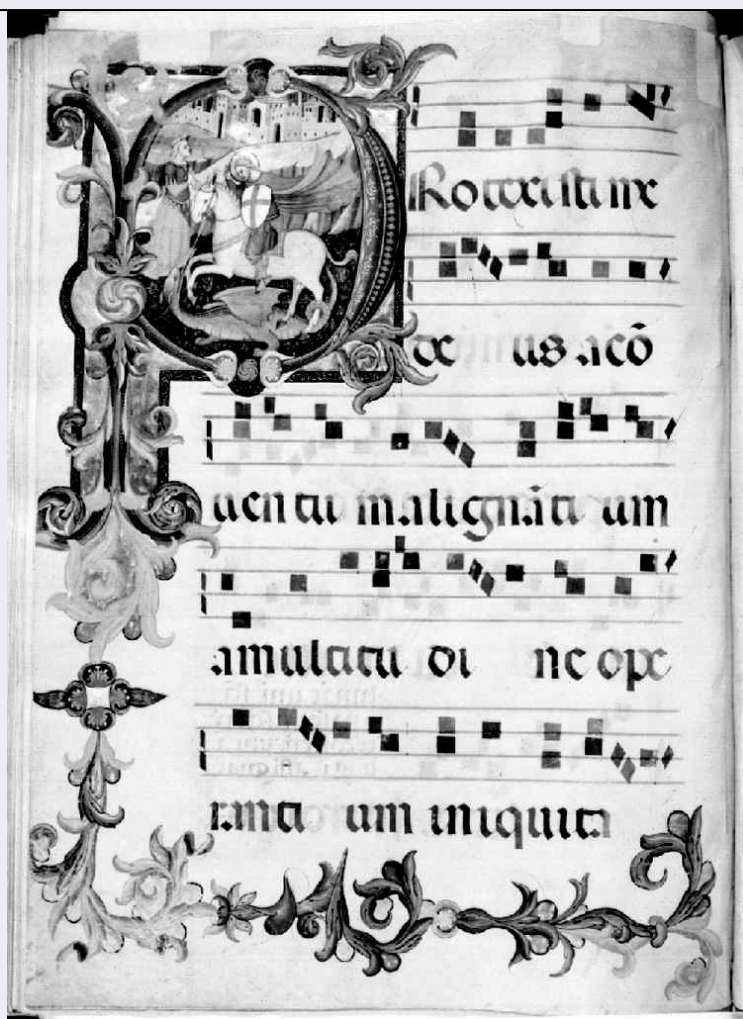 PRotexisti me
de us a cō
uentu malignāti um
a multitu di ne ope
ranti um iniquita